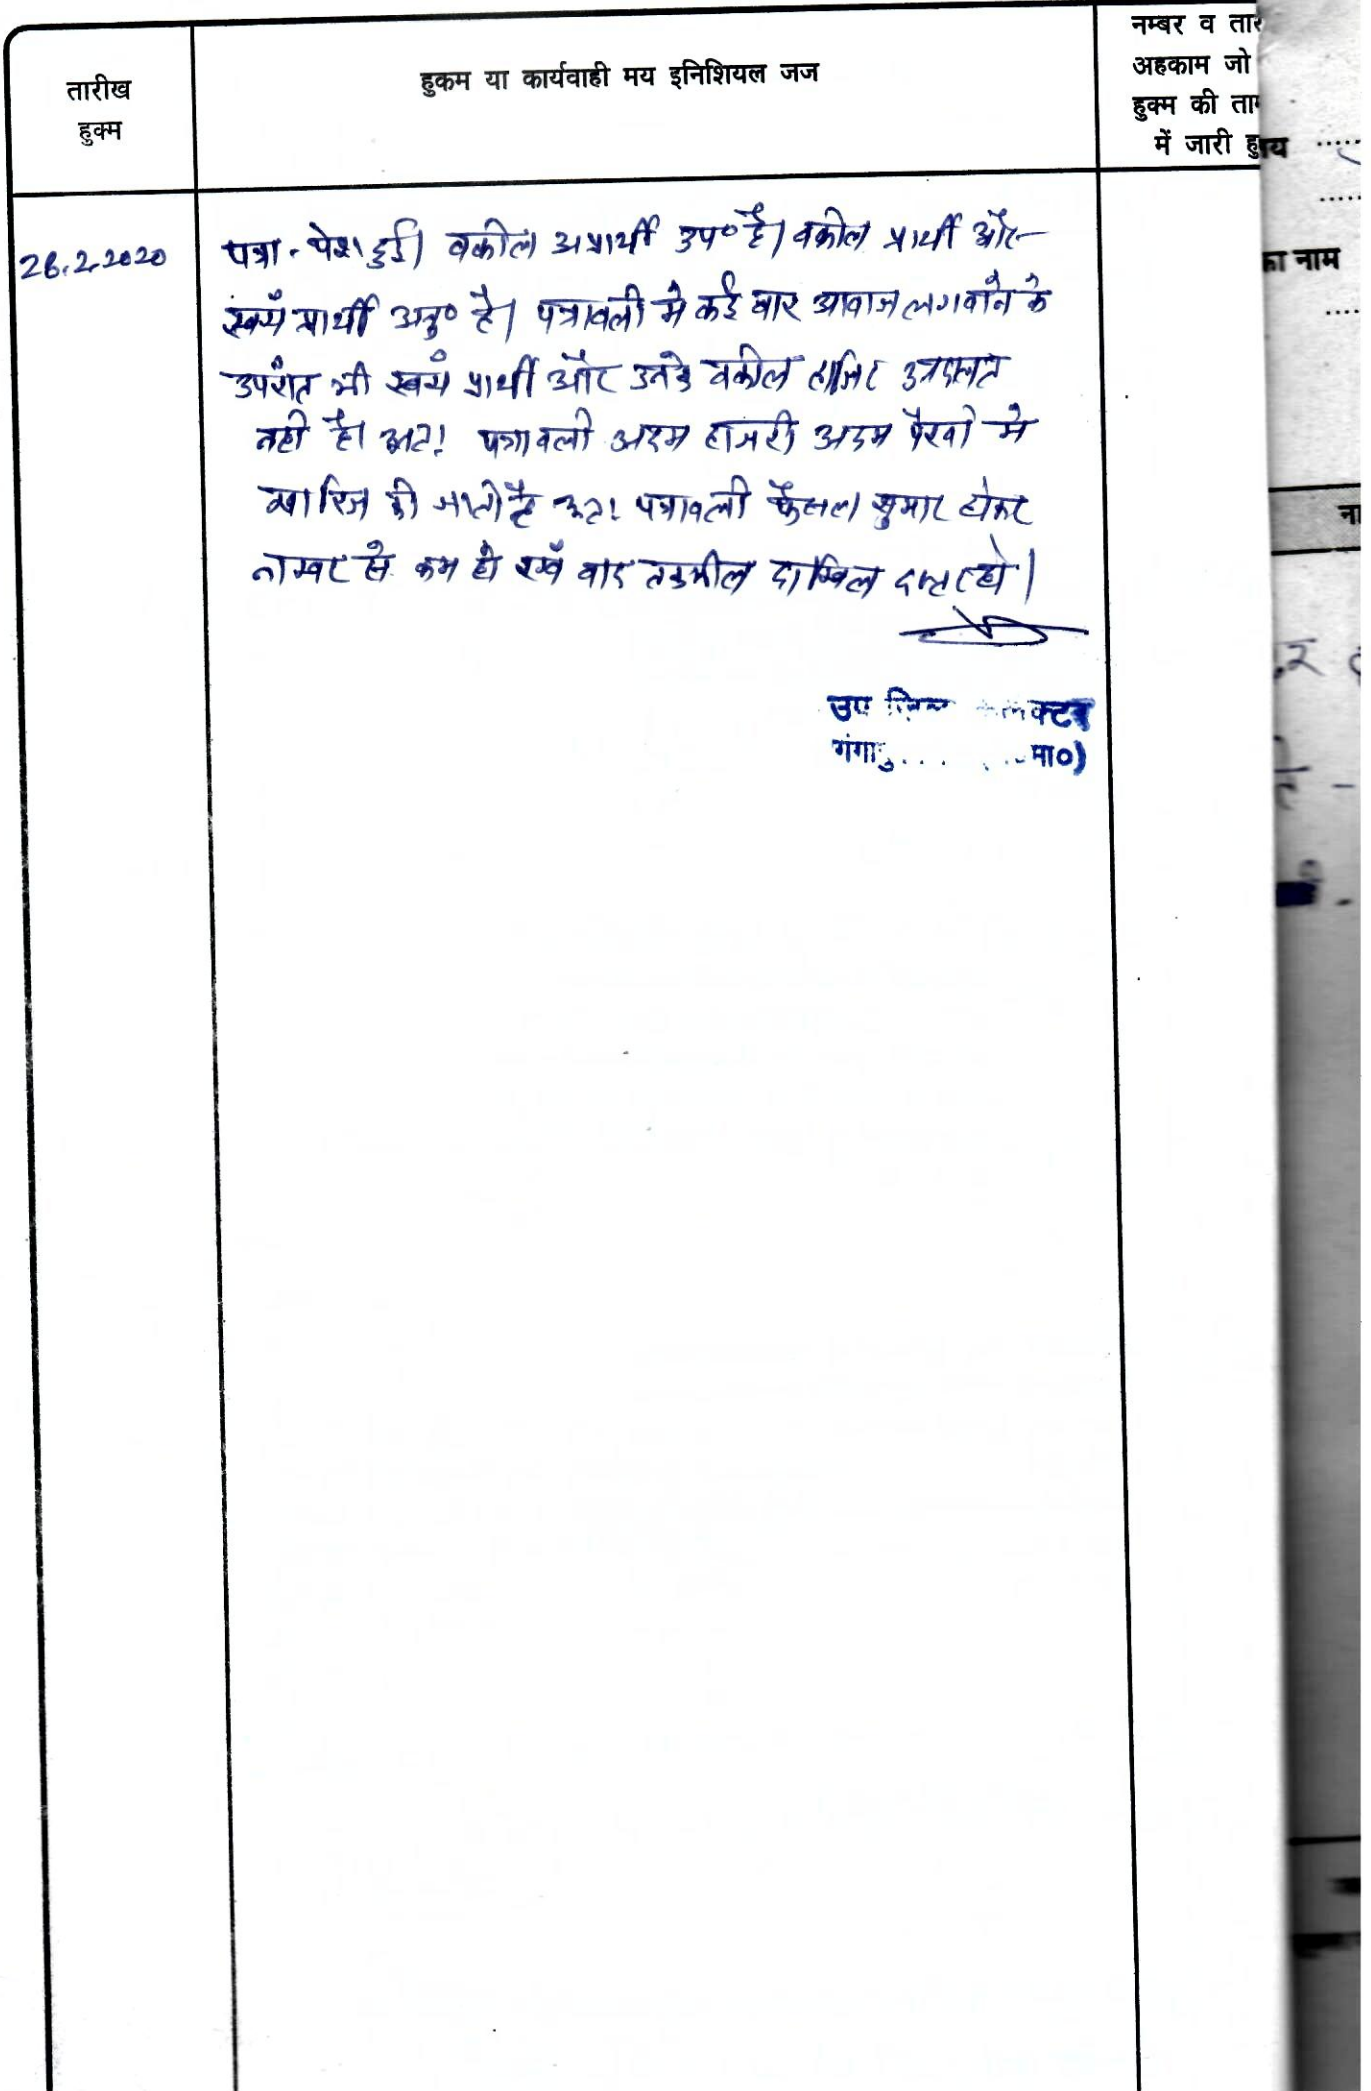 तारीख
हुक्म
हुकम या कार्यवाही मय इनिशियल जज
नम्बर व तारी
अहकाम जो
हुक्म की ताम
में जारी हु
28.2.2020
पत्रा - पेश हुई। वकील अप्रार्थी उप० है। वकील प्रार्थी और
स्वयं प्रार्थी अनु० है। पत्रावली मे कई बार आवाज लगवाने के
उपरांत भी स्वयं प्रार्थी और उनके वकील हाजिर अदालत
नही है। अतः पत्रावली अदम हाजरी अदम पैरवी मे
खारिज की जाती है अतः पत्रावली फैसल शुमार होकर
नम्बर से कम हो एवं बाद तकमील दाखिल दफ्तर हो।
उप जिला कलक्टर
गंगापु मा०)
य
का नाम
ना